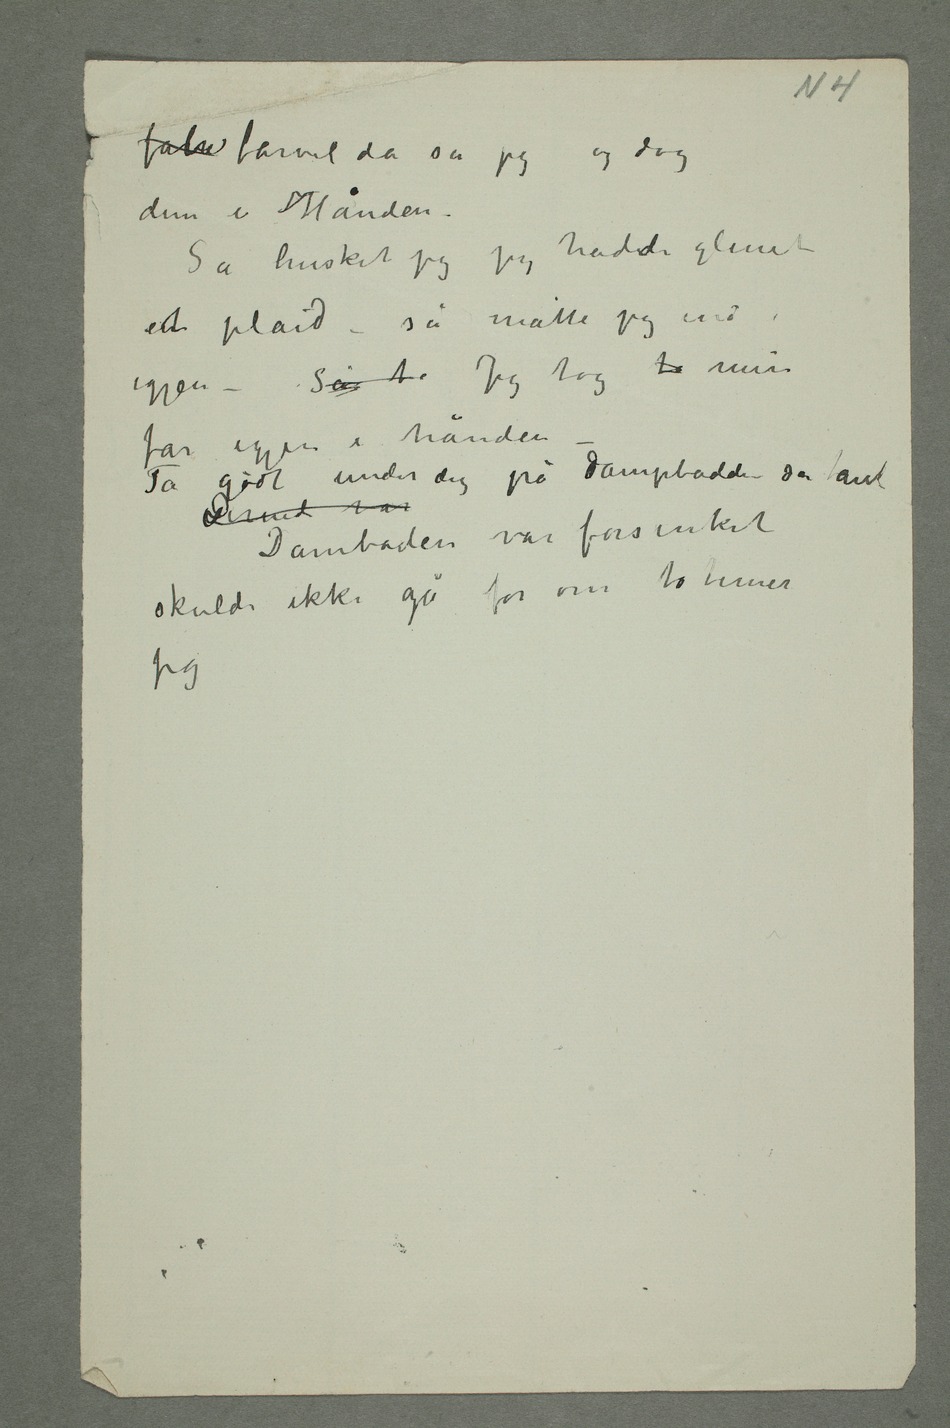 N 4
farvel da sa jeg og dog
dem i Hånden.
Sa husket jeg jeg hadde glemt
et plaid – så måtte jeg ind i
igjen – Så to Jeg tog to min
far igjen i hånden –
Ta godt under dig på dampbadden sa tant
Derned var
Dambaden var forsinket
skulde ikke gå før om to timer
jeg